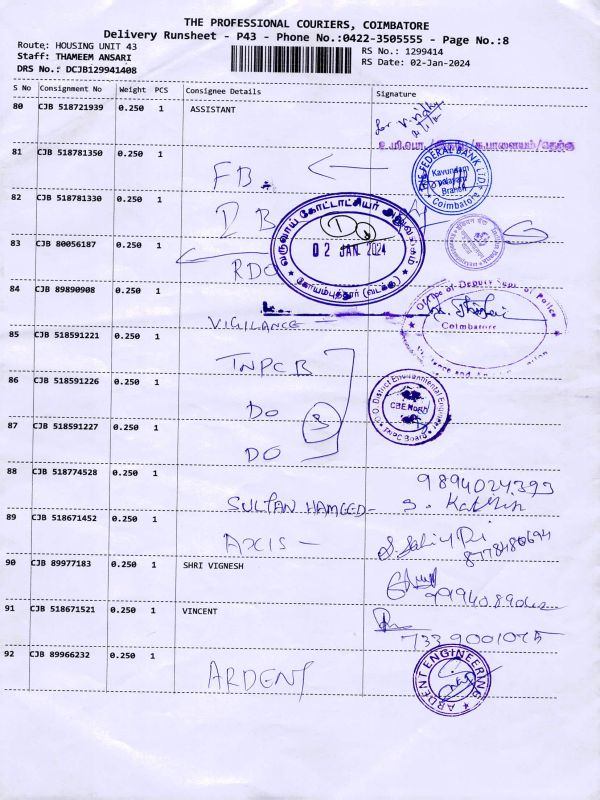 THE PROFESSIONAL COURIERS, COIMBATORE
Delivery Runsheet - P43 - Phone No.:0422-3505555 - Page No.:8
Route: HOUSING UNIT 43
RS No.: 1299414
Staff: THAMEEM ANSARI
RS Date: 02-Jan-2024
DRS No.: DCJB129941408
S No Consignment No Weight PCS Consignee Details Signature
80 CJB 518721939 0.250 1 ASSISTANT
81 CJB 518781350 0.250 1
FB.
THE FEDERAL BANK LTD. Kavundam palayam Branch Coimbatore
82 CJB 518781330 0.250 1
வருவாய் கோட்டாட்சியர் அலுவலகம்
1
02 JAN 2024
கோயம்புத்தூர் (வடக்கு)
83 CJB 80056187 0.250 1
RDO
84 CJB 89890908 0.250 1
Office of Deputy Supt of Police
Coimbatore
VIGILANCE
85 CJB 518591221 0.250 1
TNPCB
86 CJB 518591226 0.250 1
DO
3
O/O. District Environmental Engineer
CBE.North
TNPC Board
87 CJB 518591227 0.250 1
DO
88 CJB 518774528 0.250 1
9894024393
SULTAN HAMEED -
89 CJB 518671452 0.250 1
AXIS -
8778480694
90 CJB 89977183 0.250 1 SHRI VIGNESH
91 CJB 518671521 0.250 1 VINCENT
7339001075
92 CJB 89966232 0.250 1
ARDENT
ARDENT ENGINEERING